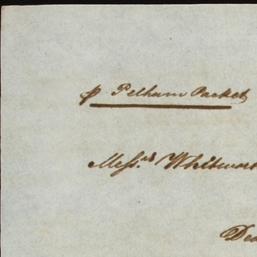 p Pelham Packet
Mess.rs Whitwor
Dea